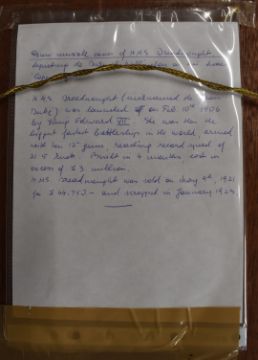 Gun muzzle cover of H.M.S. Dreadnought
depicting the
H.M.S. Dreadnought (nicknamed the Iron
Duke) was launched on Feb 10th 1906
by King Edward VII. She was then the
biggest fastest battleship in the world, armed
with ten 12" guns, reaching record speed of
21.5 knots. Built in 4 months, cost in
excess of £ 3 million.
H.M.S. Dreadnought was sold on May 9th, 1921
for £ 44.750 – and scrapped in January 1923.